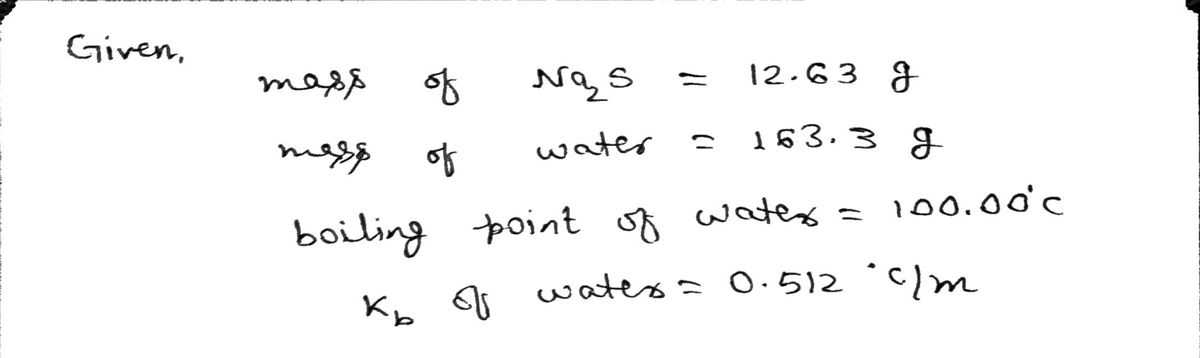 Given,
mass of Na₂S = 12.63 g
mass of water = 163.3 g
boiling point of water = 100.00°C
K_b of water = 0.512 °C/m